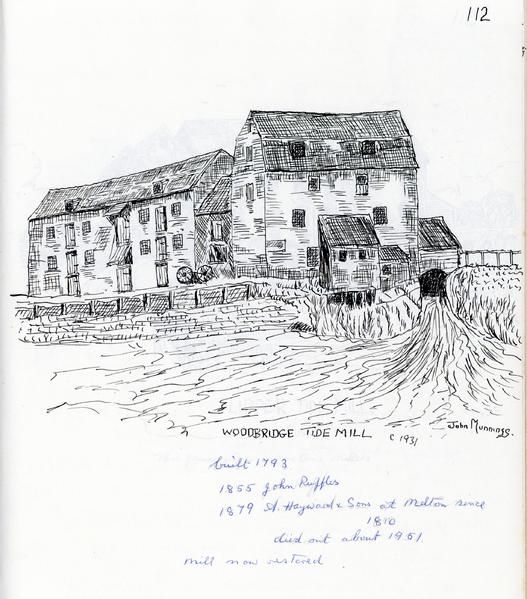 112
WOODBRIDGE TIDE MILL
C 1931
John Munnings.
built 1793
1855 John Ruffles
1879 A. Hayward & Sons at Melton since
1810
died out about 1951.
Mill now restored